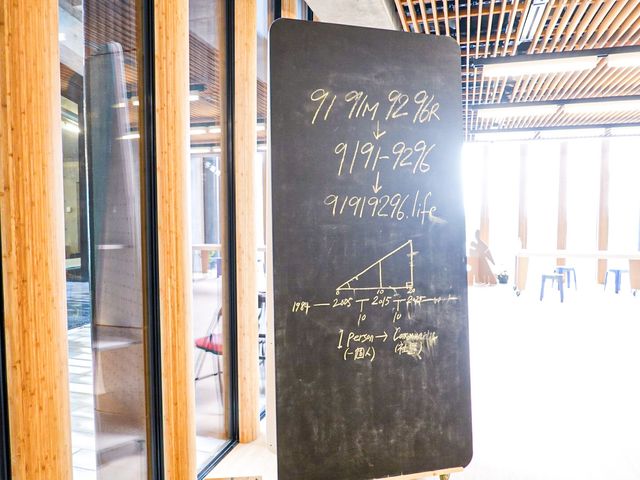 91 91M 92 96R
↓
9191-9296
↓
91919296.life
0 10 20
1984 — 2005 — 2015 —
10 10
1 person → Community
(一個人) (社